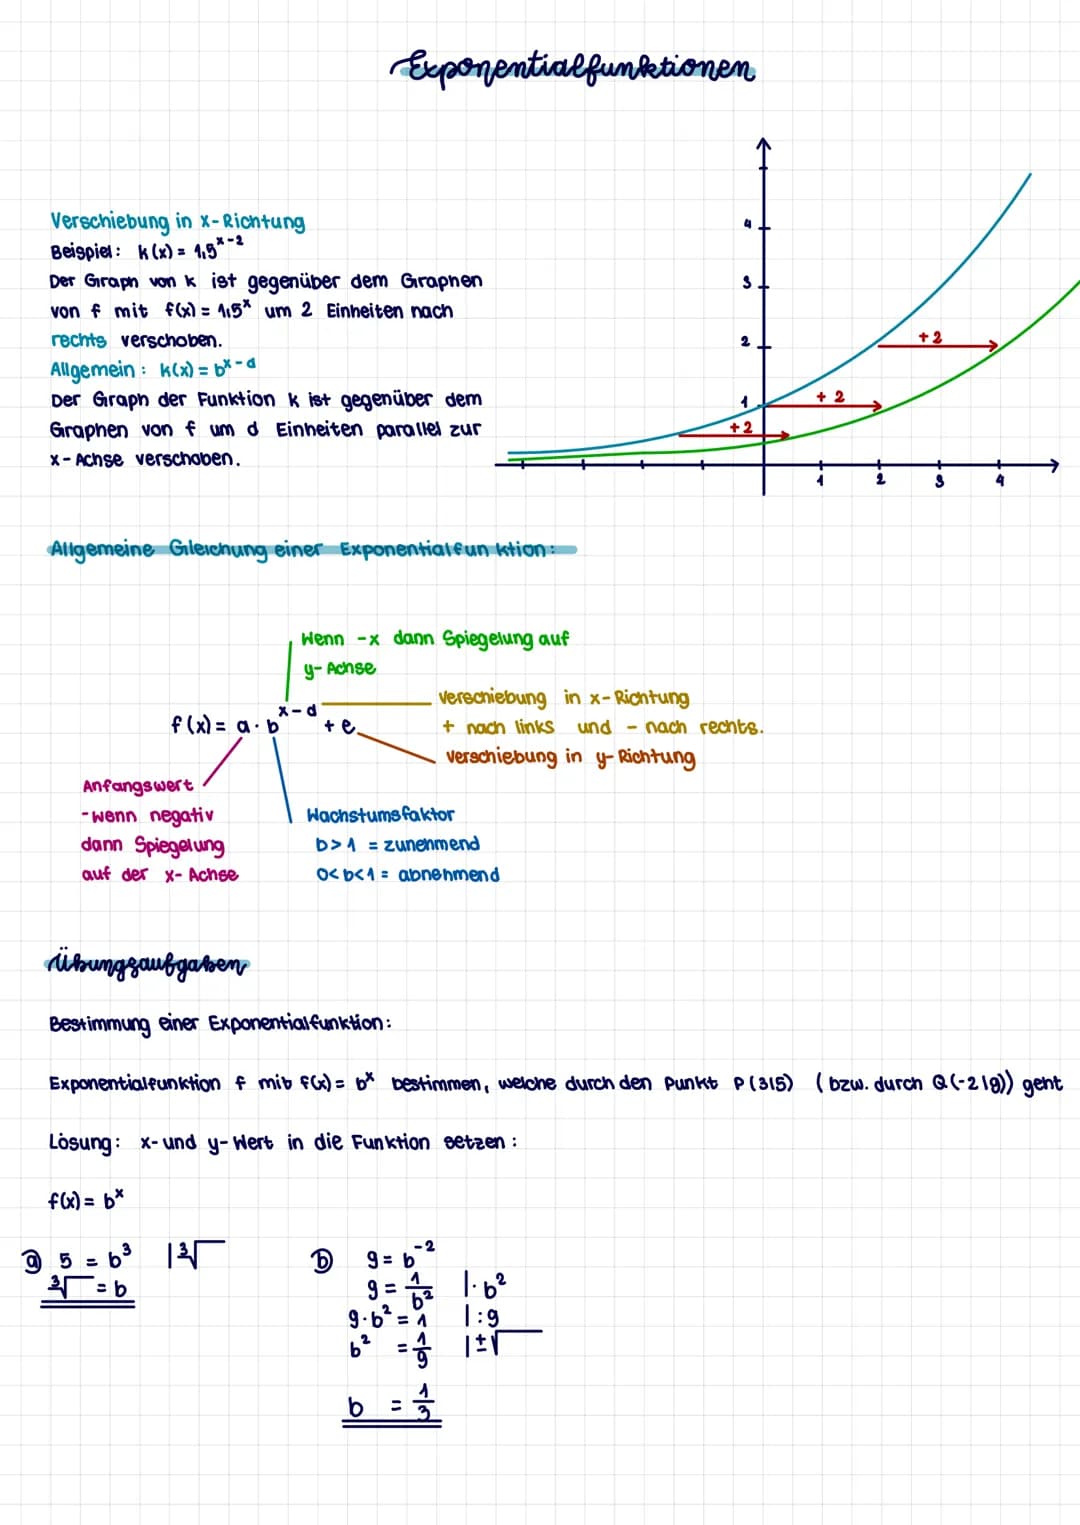 Exponentialfunktionen
Verschiebung in x-Richtung
Beispiel: k(x) = 1,5ˣ⁻²
Der Graph von k ist gegenüber dem Graphen
von f mit f(x) = 1,5ˣ um 2 Einheiten nach
rechts verschoben.
Allgemein: k(x) = bˣ⁻ᵈ
Der Graph der Funktion k ist gegenüber dem
Graphen von f um d Einheiten parallel zur
x-Achse verschoben.
4
3
2
1
+2
+2
+2
1 2 3 4
Allgemeine Gleichung einer Exponentialfunktion:
Wenn -x dann Spiegelung auf
y-Achse
Verschiebung in x-Richtung
+ nach links und - nach rechts.
f(x) = a · bˣ⁻ᵈ + e
Verschiebung in y-Richtung
Anfangswert
-wenn negativ
dann Spiegelung
auf der x-Achse
Wachstumsfaktor
b>1 = zunehmend
0<b<1 = abnehmend
Übungsaufgaben
Bestimmung einer Exponentialfunktion:
Exponentialfunktion f mit f(x) = bˣ bestimmen, welche durch den Punkt P(3|5) (bzw. durch Q(-2|9)) geht
Lösung: x-und y-Wert in die Funktion setzen:
f(x) = bˣ
a) 5 = b³ |³√
³√ = b
b) 9 = b⁻²
9 = 1/b² |· b²
9·b² = 1 |:9
b² = 1/9 |±√
b = 1/3